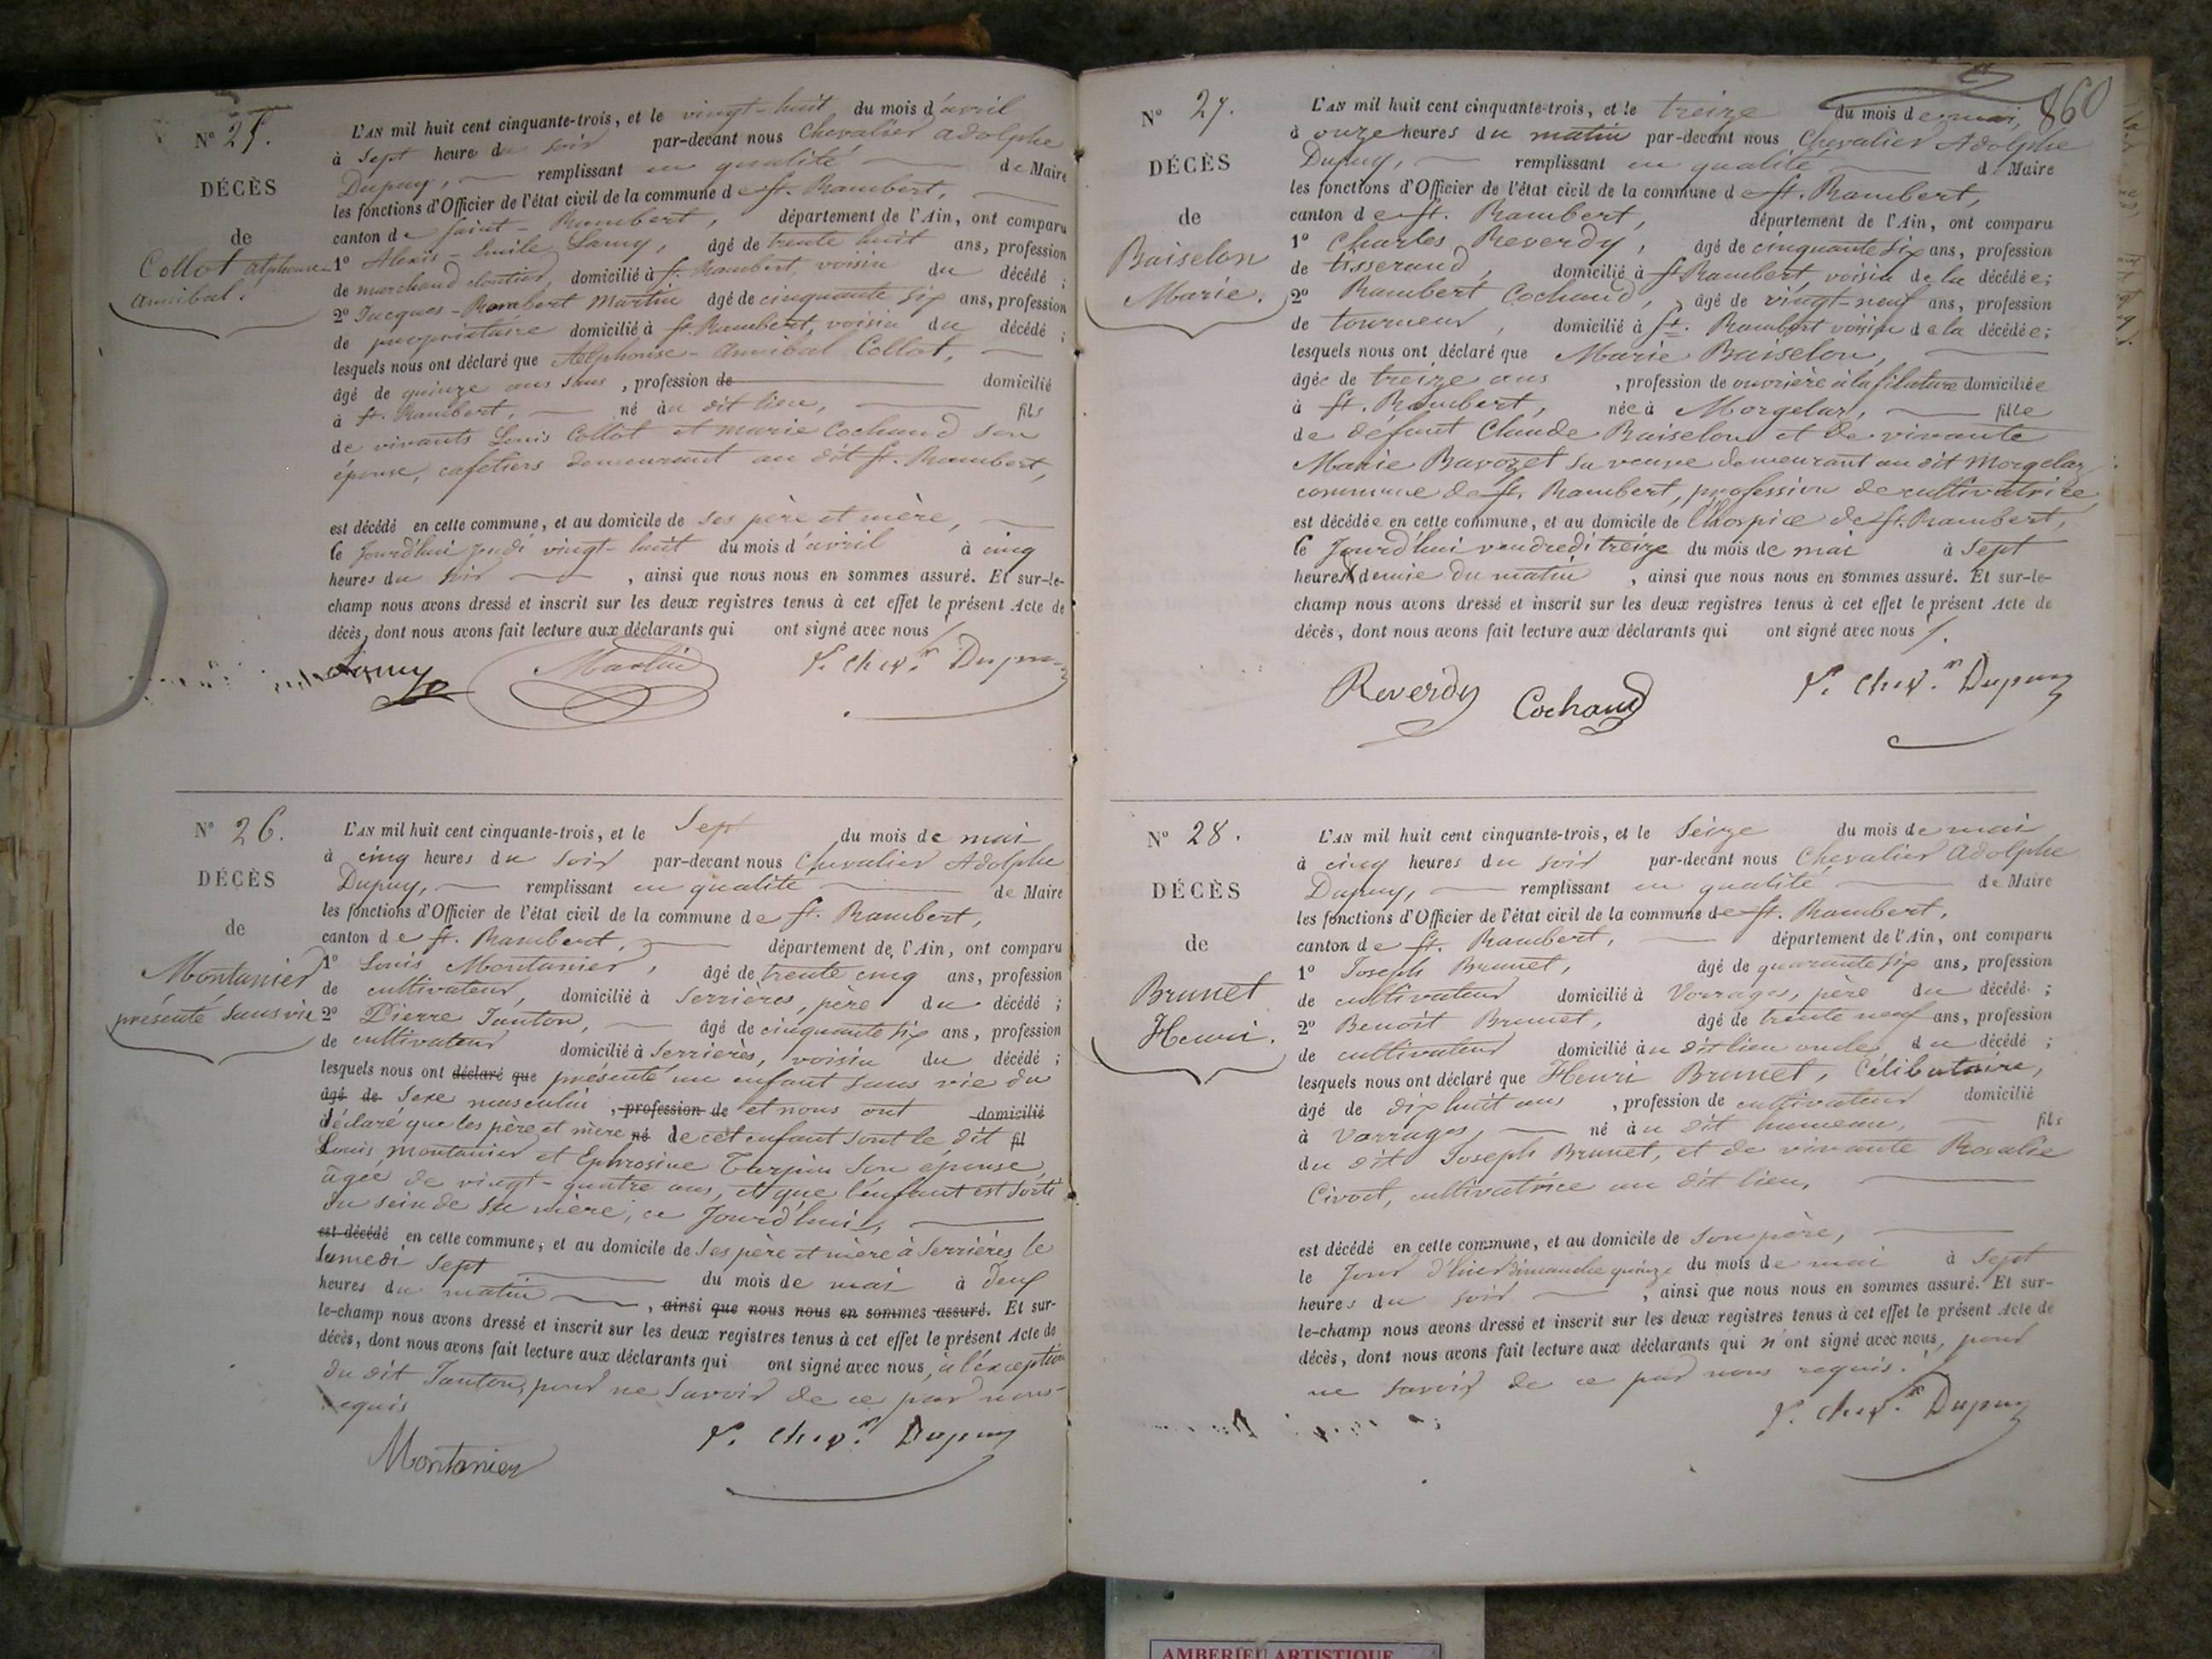 N° 25.
DÉCÈS
de
Collot Alphonse
Annibal.
L'AN mil huit cent cinquante-trois, et le vingt-huit du mois d'avril
à Sept heure du soir par-devant nous Chevalier Adolphe
Dupuy, remplissant en qualité de Maire
les fonctions d'Officier de l'état civil de la commune de St. Rambert,
canton de Saint-Rambert, département de l'Ain, ont comparu
1° Alexis-Emile Lamy, âgé de trente huit ans, profession
de marchand cloutier, domicilié à St. Rambert, voisin du décédé ;
2° Jacques-Rambert Martin âgé de cinquante six ans, profession
de propriétaire domicilié à St. Rambert, voisin du décédé ;
lesquels nous ont déclaré que Alphonse-Annibal Collot,
âgé de quinze ans sans , profession de domicilié
à St. Rambert, né au dit lieu, fils
de vivants Louis Collot et Marie Cochand son
épouse, cafetiers demeurant au dit St. Rambert,
est décédé en cette commune, et au domicile de ses père et mère,
le jourd'hui jeudi vingt-huit du mois d'avril à cinq
heures du soir , ainsi que nous nous en sommes assuré. Et sur-le-
champ nous avons dressé et inscrit sur les deux registres tenus à cet effet le présent Acte de
décès, dont nous avons fait lecture aux déclarants qui ont signé avec nous
Lamy Martin Chevr. Dupuy
N° 26.
DÉCÈS
de
Montanier
présenté sans vie
L'AN mil huit cent cinquante-trois, et le Sept du mois de mai
à cinq heures du soir par-devant nous Chevalier Adolphe
Dupuy, remplissant en qualité de Maire
les fonctions d'Officier de l'état civil de la commune de St. Rambert,
canton de St. Rambert, département de l'Ain, ont comparu
1° Louis Montanier, âgé de trente cinq ans, profession
de cultivateur, domicilié à Serrières, père du décédé ;
2° Pierre Tanton, âgé de cinquante six ans, profession
de cultivateur domicilié à Serrières, voisin du décédé ;
lesquels nous ont déclaré que présenté un enfant sans vie du
âgé de Sexe masculin , profession de et nous ont domicilié
déclaré que les père et mère né de cet enfant sont le dit fil
Louis Montanier et Ephrosine Tarpin son épouse,
âgée de vingt-quatre ans, et que l'enfant est sorti
du sein de sa mère, ce jourd'hui,
est décédé en cette commune, et au domicile de ses père et mère à Serrières le
Samedi Sept du mois de mai à deux
heures du matin , ainsi que nous nous en sommes assuré. Et sur-
le-champ nous avons dressé et inscrit sur les deux registres tenus à cet effet le présent Acte de
décès, dont nous avons fait lecture aux déclarants qui ont signé avec nous, à l'exception
du dit Tanton, pour ne savoir de ce par nous
requis
Montanier Chevr. Dupuy
860
N° 27.
DÉCÈS
de
Baiselon
Marie.
L'AN mil huit cent cinquante-trois, et le treize du mois de mai,
à onze heures du matin par-devant nous Chevalier Adolphe
Dupuy, remplissant en qualité de Maire
les fonctions d'Officier de l'état civil de la commune de St. Rambert,
canton de St. Rambert, département de l'Ain, ont comparu
1° Charles Reverdy, âgé de cinquante six ans, profession
de tisserand, domicilié à St Rambert, voisin de la décédée;
2° Rambert Cochand, âgé de vingt-neuf ans, profession
de tourneur, domicilié à St. Rambert voisin de la décédée;
lesquels nous ont déclaré que Marie Baiselon,
âgée de treize ans , profession de ouvrière à la filature domiciliée
à St. Rambert, née à Morgelas, fille
de défunt Claude Baiselon et de vivante
Marie Bavozet sa veuve demeurant au dit Morgelaz
commune de St. Rambert, profession de cultivatrice
est décédée en cette commune, et au domicile de l'hospice de St. Rambert,
le jourd'hui vendredi treize du mois de mai à Sept
heures demie du matin , ainsi que nous nous en sommes assuré. Et sur-le-
champ nous avons dressé et inscrit sur les deux registres tenus à cet effet le présent Acte de
décès, dont nous avons fait lecture aux déclarants qui ont signé avec nous
Reverdy Cochand Chevr. Dupuy
N° 28.
DÉCÈS
de
Brunet
Henri.
L'AN mil huit cent cinquante-trois, et le Seize du mois de mai
à cinq heures du soir par-devant nous Chevalier Adolphe
Dupuy, remplissant en qualité de Maire
les fonctions d'Officier de l'état civil de la commune de St. Rambert,
canton de St. Rambert, département de l'Ain, ont comparu
1° Joseph Brunet, âgé de quarante six ans, profession
de cultivateur domicilié à Vorrages, père du décédé ;
2° Benoit Brunet, âgé de trente neuf ans, profession
de cultivateur domicilié au dit lieu oncle du décédé ;
lesquels nous ont déclaré que Henri Brunet, Célibataire,
âgé de dix huit ans , profession de cultivateur domicilié
à Vorrages, né au dit hameau, fils
du dit Joseph Brunet, et de vivante Rosalie
Civoct, cultivatrice au dit lieu,
est décédé en cette commune, et au domicile de son père,
le Jour d'hier dimanche quinze du mois de mai à Sept
heures du soir , ainsi que nous nous en sommes assuré. Et sur-
le-champ nous avons dressé et inscrit sur les deux registres tenus à cet effet le présent Acte de
décès, dont nous avons fait lecture aux déclarants qui n'ont signé avec nous, pour
ne savoir de ce par nous requis.
Chevr. Dupuy
AMBERIEU ARTISTIQUE